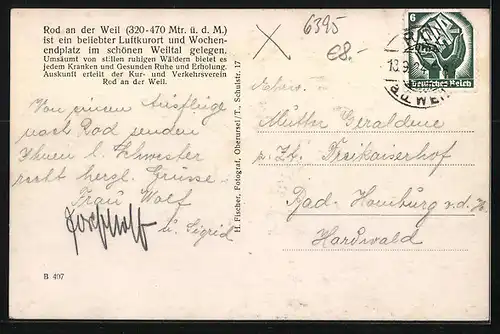 Rod an der Weil (320-470 Mtr. ü. d. M.)
ist ein beliebter Luftkurort und Wochen-
endplatz im schönen Weiltal gelegen.
Umsäumt von stillen ruhigen Wäldern bietet es
jedem Kranken und Gesunden Ruhe und Erholung.
Auskunft erteilt der Kur- und Verkehrsverein
Rod an der Weil.
Von einem Ausfluge
nach Rod senden
Ihnen l. Schwester
recht herzl. Grüsse
Frau Wolf
u. Sigrid
B 497
H. Fischer, Fotograf, Oberursel/T., Schulstr. 17
6395
e8.-
6
Deutsches Reich
a.d. WEIL
Schw.
Mutter Geraldine
z. Zt. Dreikaiserhof
Bad-Homburg v.d.H.
Hardwald